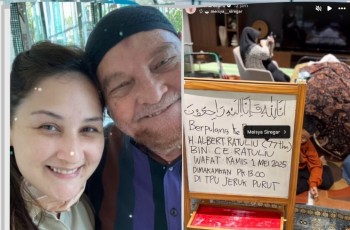 meisya__siregar
إنا لله وإنا إليه راجعون
Berpulang ke
Meisya Siregar
H ALBERT RATULIU (77 thn)
BIN CE RATULIU
WAFAT KAMIS 1 MEI 2025
DIMAKAMKAN PK 13.00
DI TPU JERUK PURUT